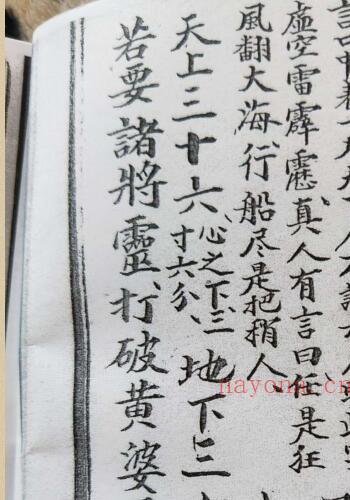 虛空雷霹靂、真人有言曰任是狂
風翻大海、行船尽是把梢人、
天上三十六、心之下、三寸六分、地下三
若要諸將靈、打破黃婆
nayona.cn